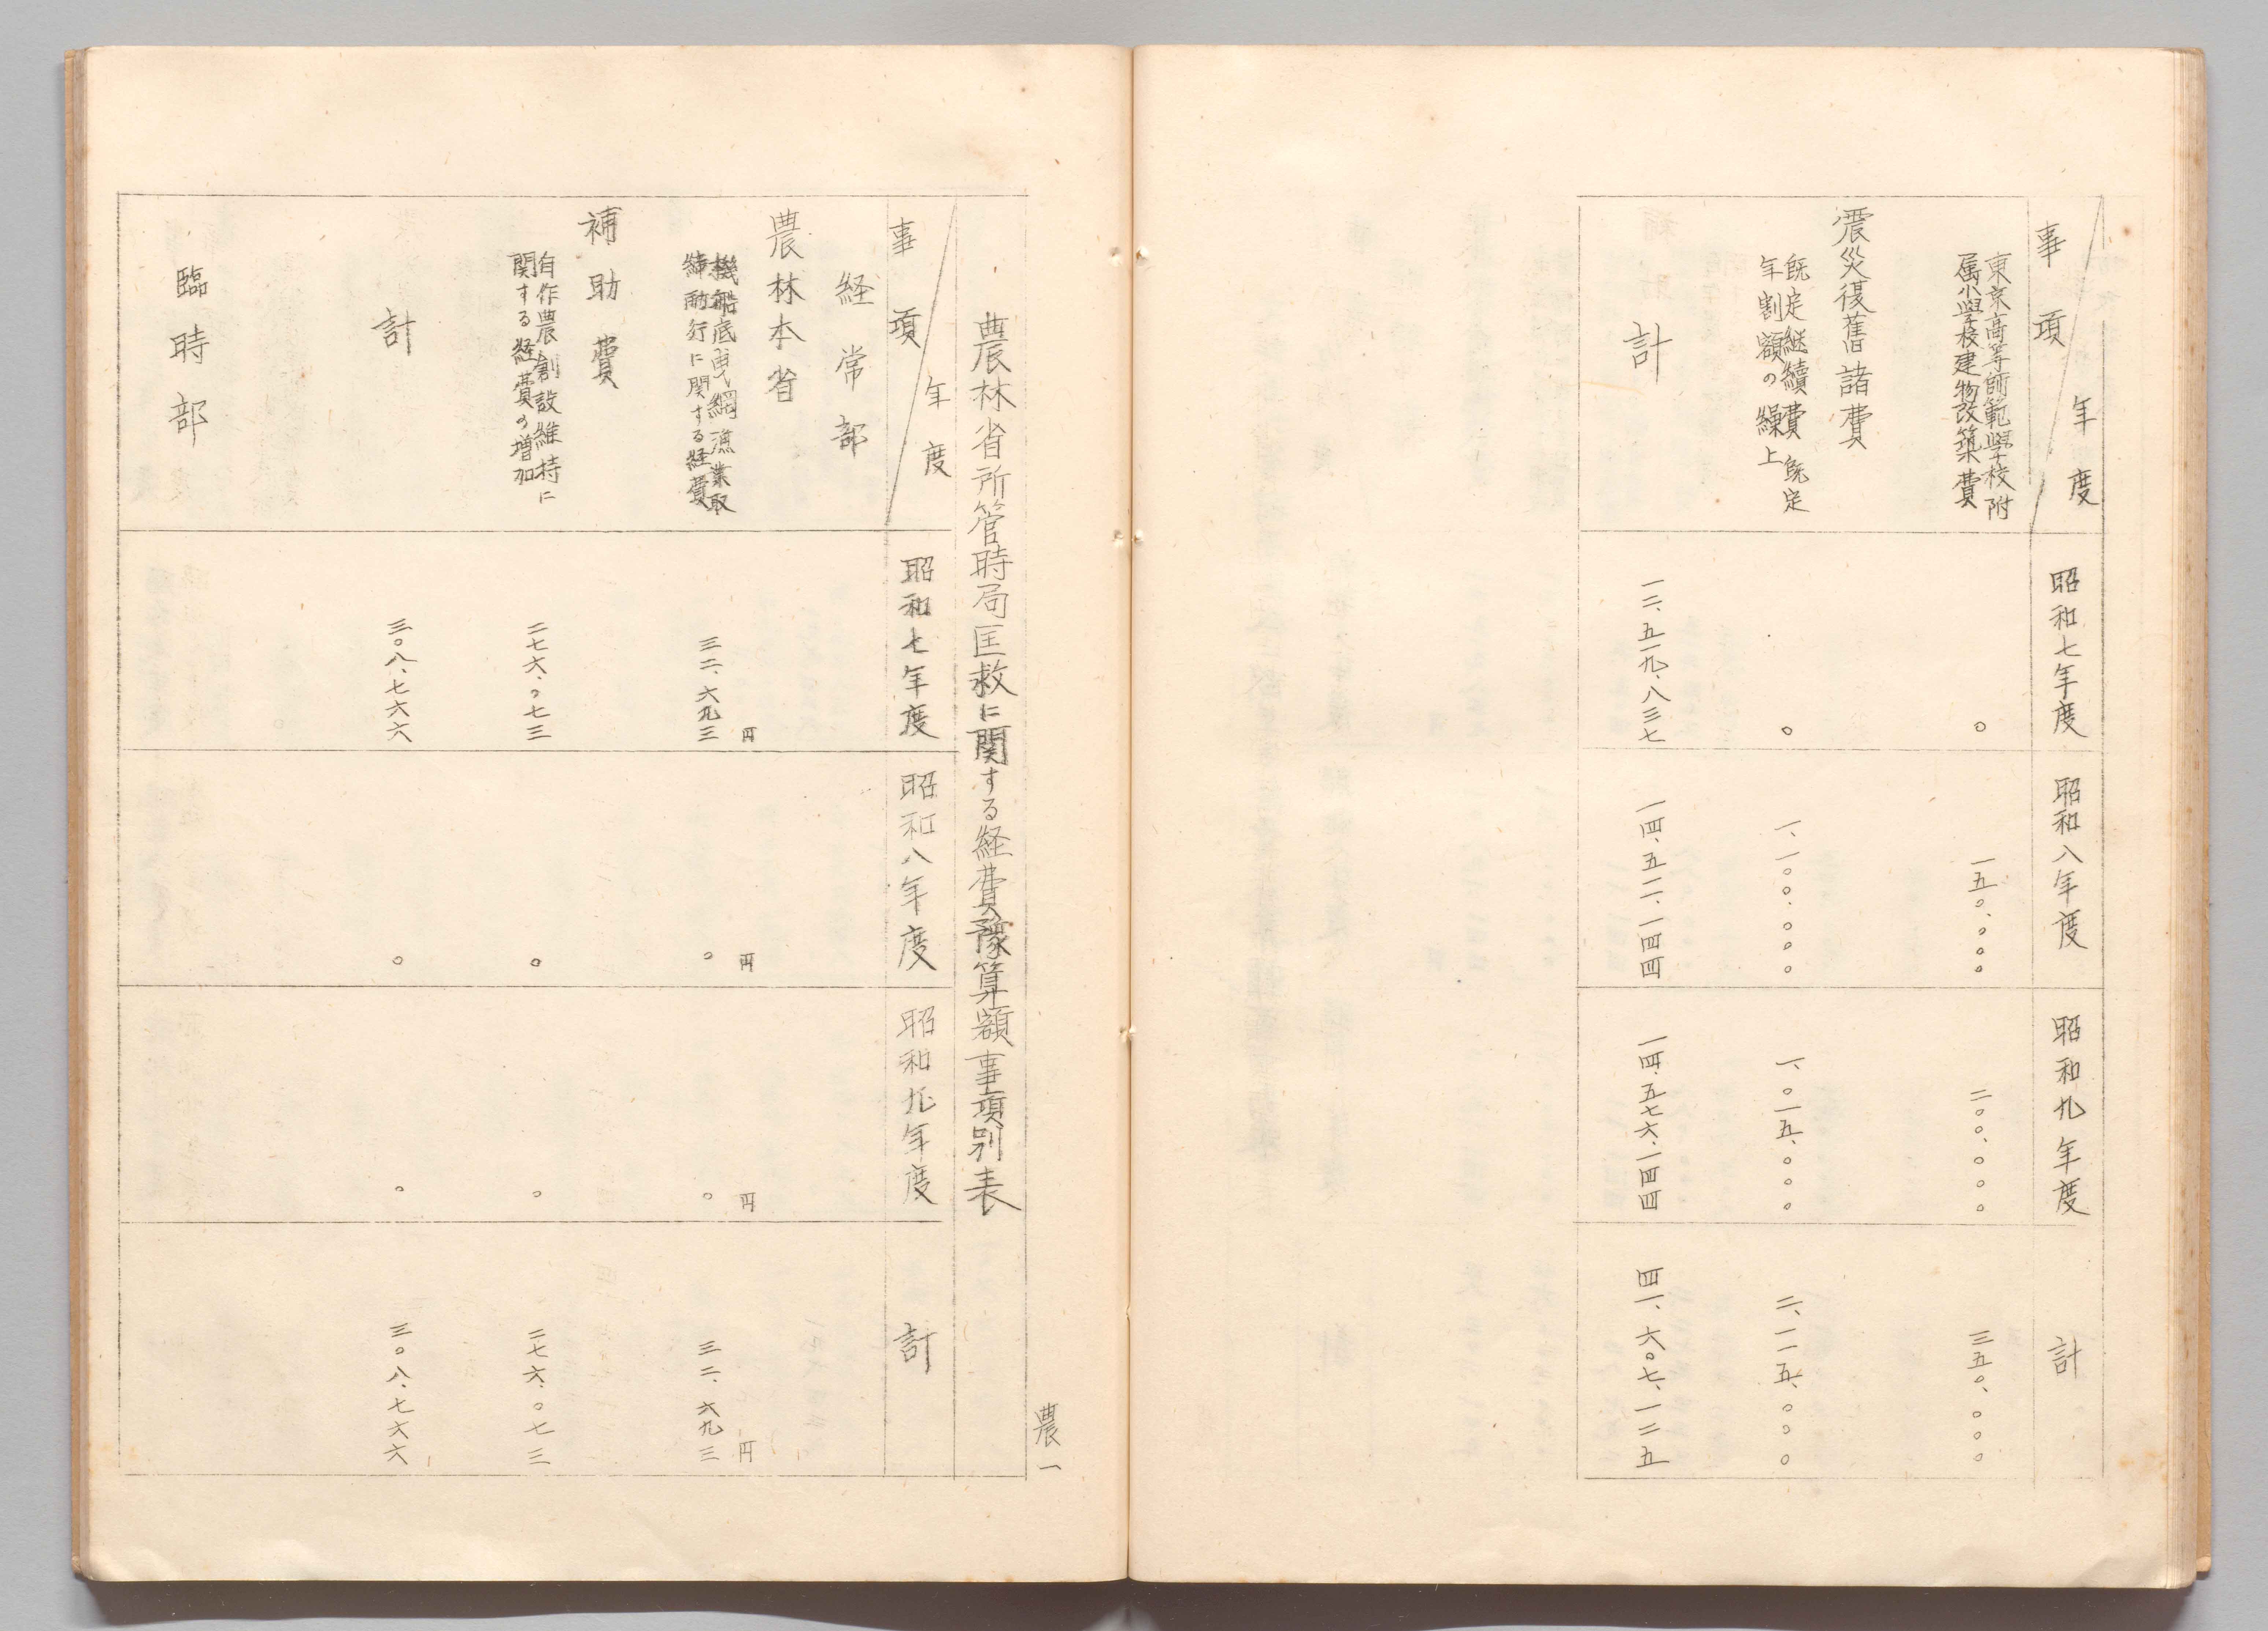 事項 年度
昭和七年度
昭和八年度
昭和九年度
計
東京高等師範學校附
属小學校建物改築費
〇
一五〇、〇〇〇
二〇〇、〇〇〇
三五〇、〇〇〇
震災復舊諸費
既定継續費既定
年割額の繰上
〇
一、一〇〇、〇〇〇
一、〇一五、〇〇〇
二、一一五、〇〇〇
計
一二、五一九、八三七
一四、五一一、一四四
一四、五七六、一四四
四一、六〇七、一二五
農一
農林省所管時局匡救に関する経費豫算額事項別表
事項 年度
昭和七年度
昭和八年度
昭和九年度
計
経常部
農林本省
円
円
円
円
機船底曳網漁業取
締励行に関する経費
三二、六九三
〇
〇
三二、六九三
補助費
自作農創設維持に
関する経費の増加
二七六、〇七三
〇
〇
二七六、〇七三
計
三〇八、七六六
〇
〇
三〇八、七六六
臨時部